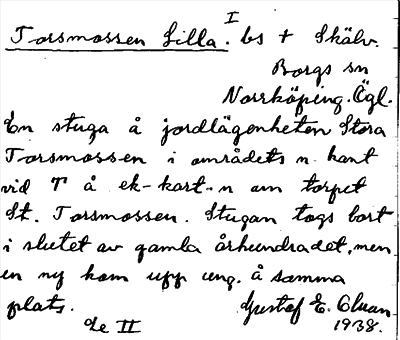 Torsmossen Lilla. I bs + Skälv.
Borgs sn
Norrköping. Ögl.
En stuga å jordlägenheten Stora
Torsmossen i områdets n. kant
vid T å ek-kart. n om torpet
St. Torsmossen. Stugan togs bort
i slutet av gamla århundradet, men
en ny kom upp ung. å samma
plats. Gustaf E.
Se II 1938.